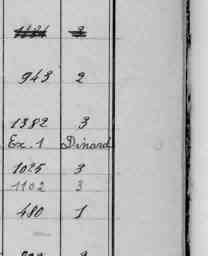 943 2
1382 3
Ex. 1 Dinard
1025 3
1102 3
480 1